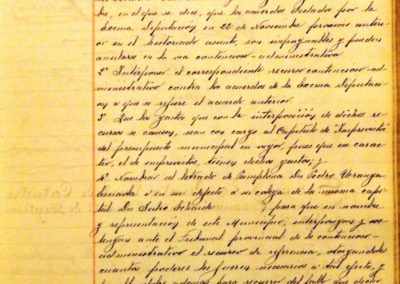 tre, en el que se dice, que los acuerdos dictados por la
Excma. Diputación en 22 de Noviembre próximo anteri-
or en el historiado asunto, son impugnables y pueden
anularse en la via contencioso-administrativa
2º Interponer el correspondiente recurso contencioso-ad-
ministrativo contra los acuerdos de la Excma. Diputaci-
on a que se refiere el acuerdo anterior.
3º Que los gastos que con la interposición de dichos re-
cursos se causen, sean con cargo al Capítulo de Imprevistos
del presupuesto municipal en vigor, pues que ese carac-
ter, el de imprevistos, tienen dichos gastos; y
4º Nombrar al letrado de Pamplona Don Pedro Uranga
Esnaola o en su defecto a su colega de la misma capi-
tal Don Pedro para que en nombre
y representación de este Municipio, interpongan y sos-
tengan ante el Tribunal provincial de lo contencioso-
administrativo el recurso de referencia, otorgandoles
cuantos poderes les fueren necesarios a tal efecto, y
ademas para recurrir del fallo que dicho